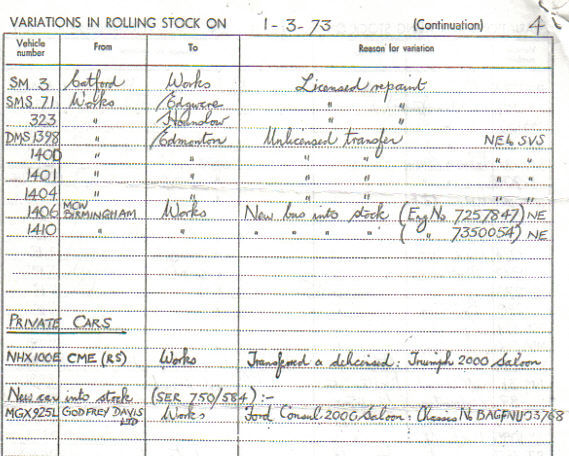 VARIATIONS IN ROLLING STOCK ON 1-3-73 (Continuation) 4
Vehicle number From To Reason for variation
SM 3 Catford Works Licensed repaint
SMS 71 Works Edgware " "
323 " Hounslow " "
DMS 1398 " Edmonton Unlicensed transfer NEW SVS
1400 " " " " " "
1401 " " " " " "
1404 " " " " " "
1406 MCW BIRMINGHAM Works New bus into stock (Eng No 7257847) NE
1410 " " " " " " ( " 7350054) NE
PRIVATE CARS
NHX100E CME (RS) Works Transferred & delicensed: Triumph 2000 Saloon
New car into stock (SER 750/584) :-
MGX925L GODFREY DAVIS LTD Works Ford Consul 2000 Saloon: Chassis No